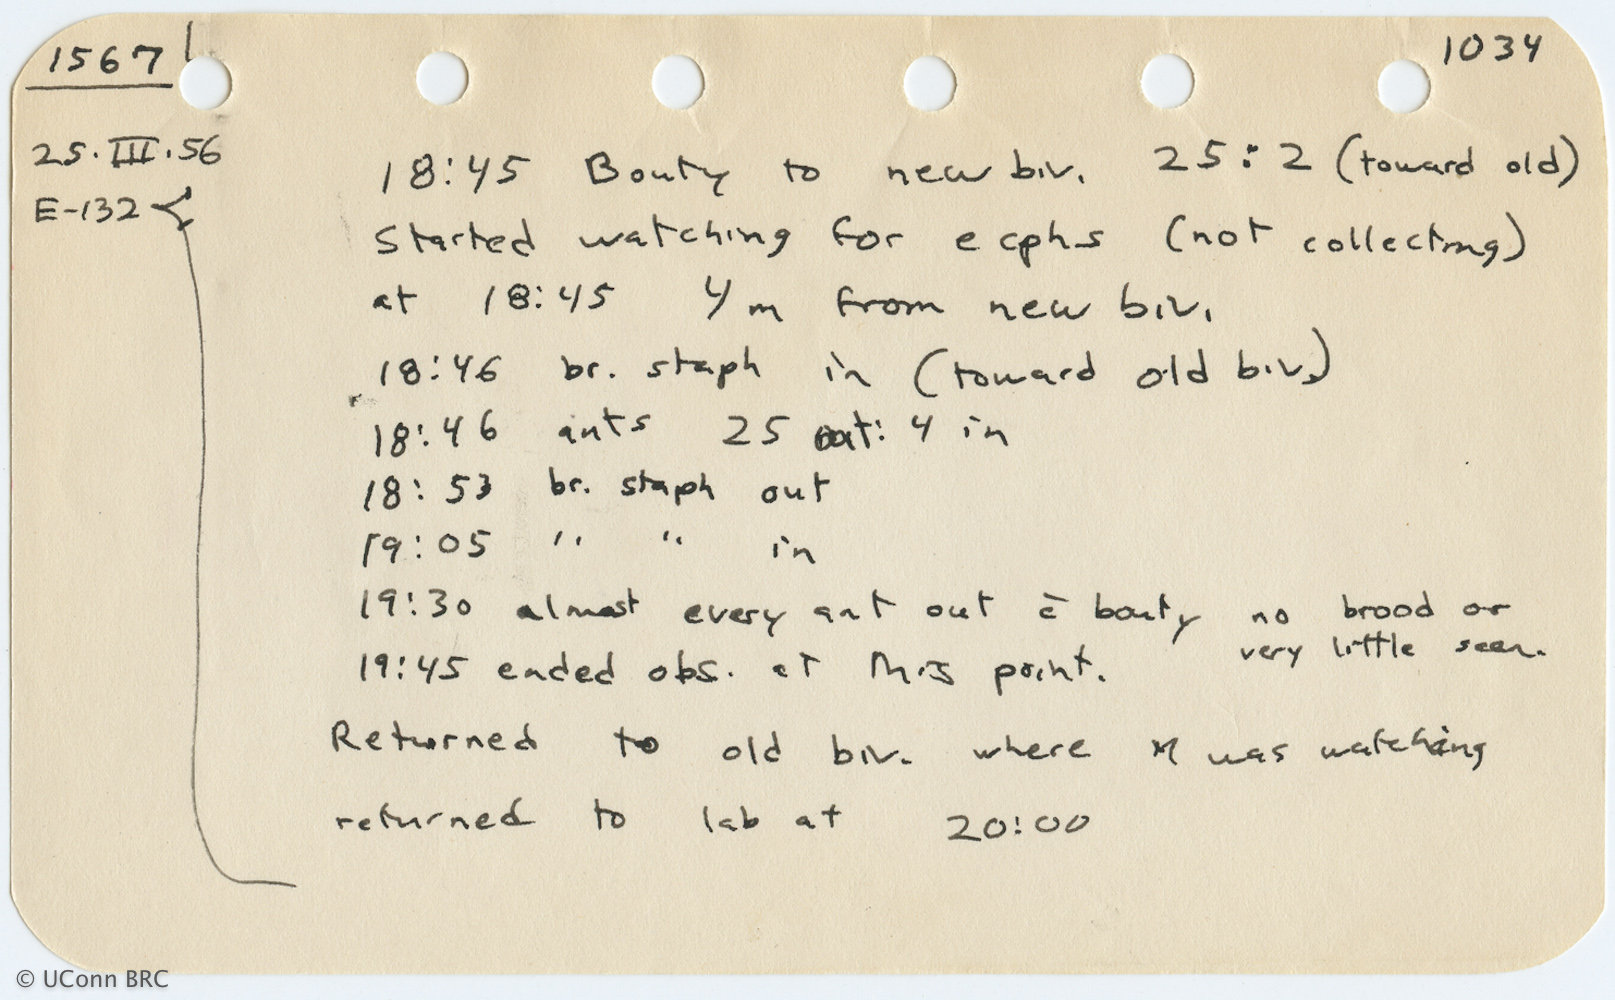 1567
1034
25.III.56
E-132
18:45 Bouty to new biv. 25:2 (toward old)
Started watching for ecphs (not collecting)
at 18:45 4m from new biv.
18:46 br. staph in (toward old biv.)
18:46 ants 25 out: 4 in
18:53 br. staph out
19:05 " " in
19:30 almost every ant out c̄ bouty no brood or
very little seen.
19:45 ended obs. at this point.
Returned to old biv. where M was watching
returned to lab at 20:00
© UConn BRC